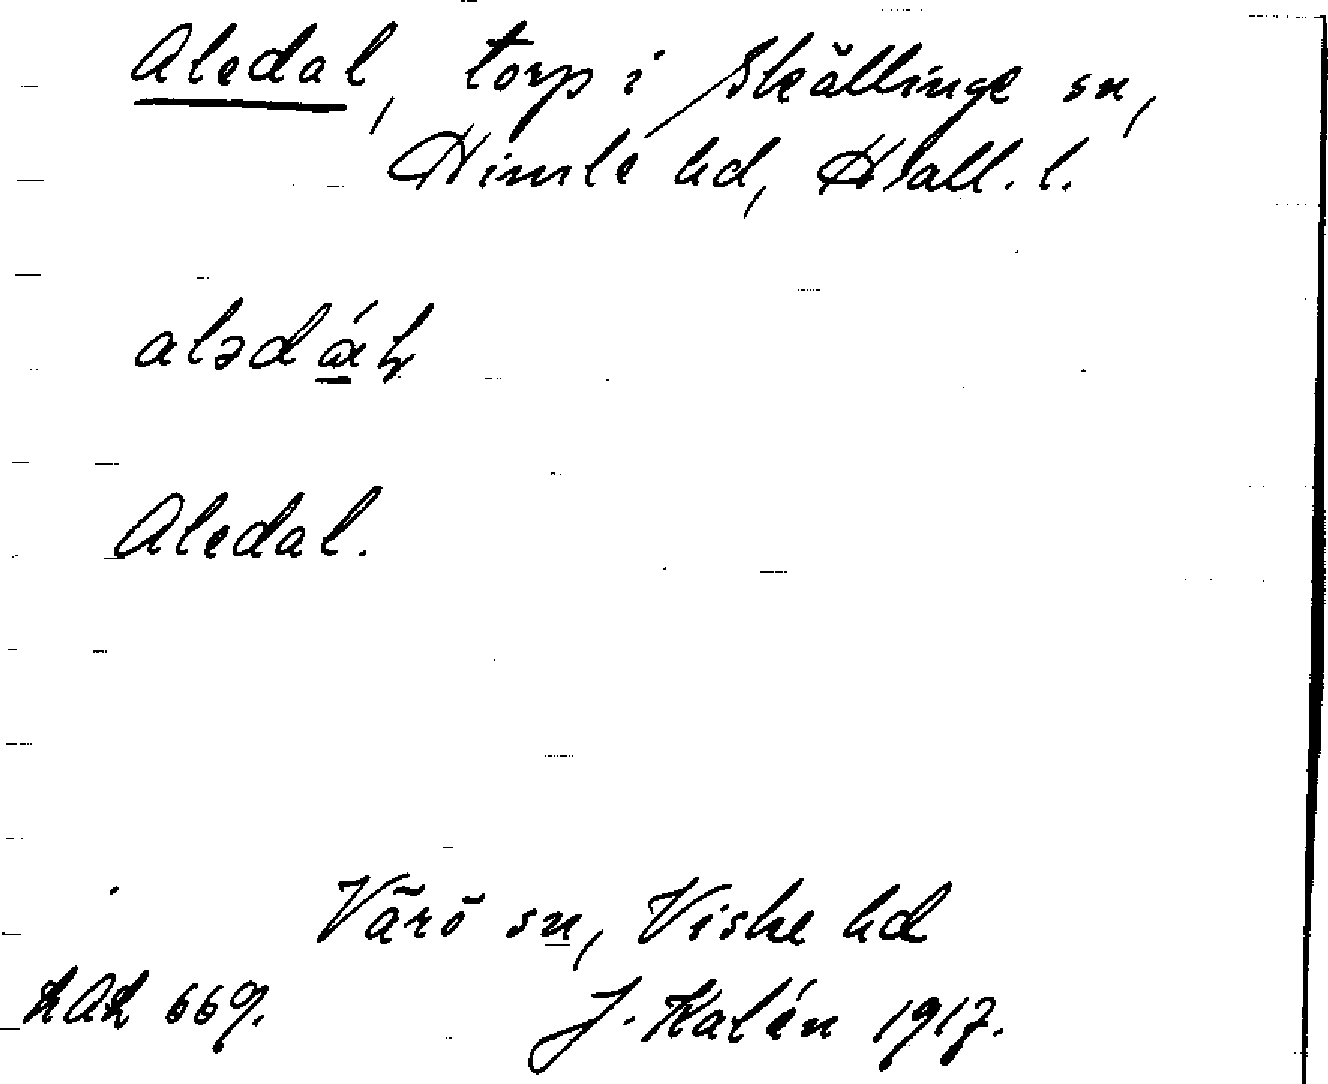 Aledal, torp i Skällinge sn,
Himle hd, Hall. l.
alədáł
Aledal.
Värö sn, Viske hd
LAL 669.
J. Kalén 1917.